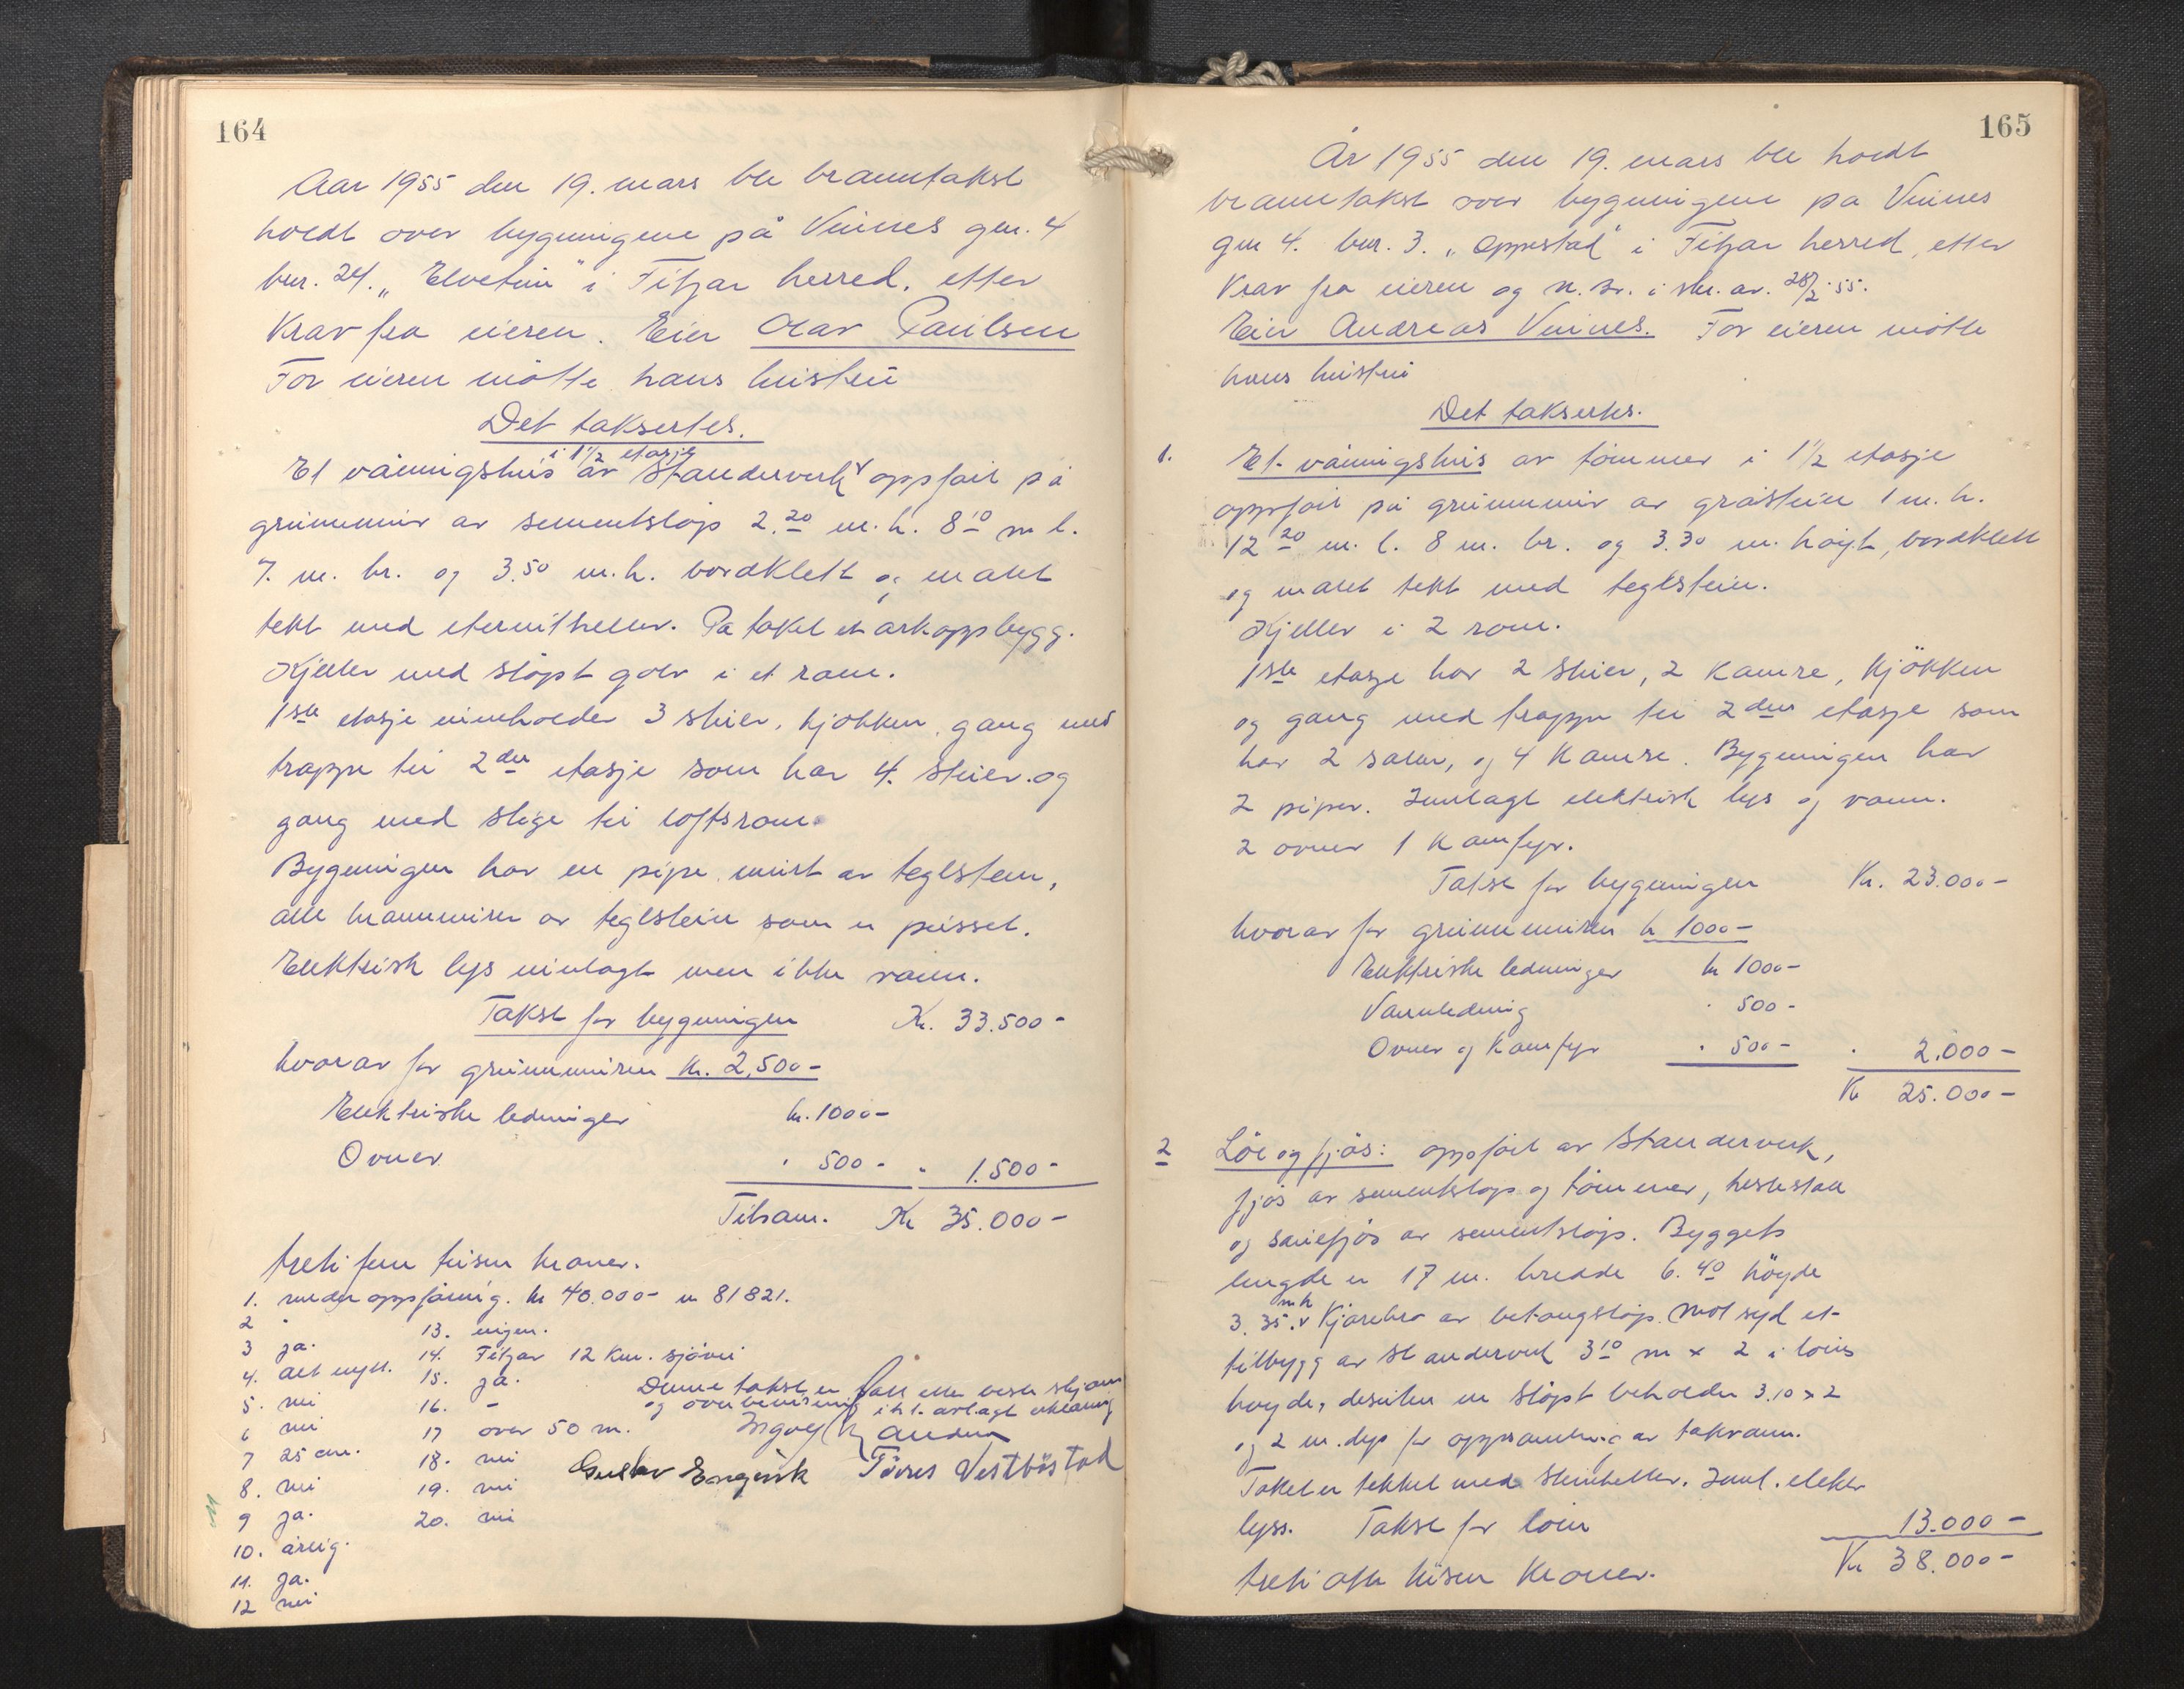 164
Aar 1955 den 19. mars ble branntakst
holdt over bygningene på Vinnes gnr. 4
bnr. 24. „Elvetun" i Fitjar herred, etter
Krav fra eieren. Eier Olav Paulsen
For eieren møtte hans hustru
Det taksertes.
i 1½ etasje
Et våningshus av Standerverk oppført på
grunnmur av sementstøp 2.20 m. h. 8 10 m l.
7. m. br. og 3.50 m. h. bordklett og malt
tekt med eternitheller. På taket et arkoppbygg.
Kjeller med støpt golv i et rom.
1ste etasje inneholder 3 stuer, kjøkken, gang med
trappe til 2den etasje som har 4. stuer og
gang med stige til loftsrom.
Bygningen har en pipe murt av teglsten,
alle brannmurer av teglstein som er pusset.
Elektrisk lys innlagt men ikke vann.
Takst for bygningen Kr. 33.500 -
hvorav for grunnmuren Kr. 2.500 -
Elektriske ledninger kr. 1000 -
Ovner " 500 - " 1.500 -
Tilsam. Kr 35.000 -
treti fem tusen kroner.
1. under oppføring. kr 40.000 - nr 81821.
2 "
3 ja.
4. alt nytt.
5. nei
6 nei
7 25 cm.
8. nei
9 ja.
10. årlig.
11. ja.
12 nei
13. ingen.
14. Fitjar 12 km. sjøvei
15. ja.
16. -
17 over 50 m.
18. nei
19. nei
20. nei
Denne takst er satt etter beste skjønn
og overbevisning i h.t. avlagt erklæring
Gustav Engevik Tørres Vestbøstad
165
År 1955 den 19. mars ble holdt
branntakst over bygningene på Vinnes
gnr 4. bnr. 3. „Oppistad" i Fitjar herred, etter
Krav fra eieren og n. br. i skr. av. 28/2-55.
Eier Andreas Vinnes. For eieren møtte
hans hustru
Det taksertes.
1. Et våningshus av tømmer i 1½ etasje
oppført på grunnmur av gråstein 1 m. h.
12 20 m. l. 8 m. br. og 3.30 m. høyt, bordklett
og malt tekt med teglstein.
Kjeller i 2 rom.
1ste etasje har 2 stuer, 2 Kamre, Kjøkken
og gang med trappe til 2den etasje som
har 2 saler, og 4 Kamre. Bygningen har
2 piper. Innlagt elektrisk lys og vann.
2 ovner 1 Kamfyr.
Takse for bygningen Kr. 23.000 -
hvorav for grunnmuren kr 1000 -
Elektriske ledninger kr 1000 -
Vannledning " 500 -
Ovner og Kamfyr " 500 - " 2.000 -
Kr 25.000 -
2 Løe og fjøs: oppført av Standerverk,
fjøs av sementstøp og tømmer, hestestall
og sauefjøs av sementstøp. Byggets
lengde er 17 m. bredde 6.40 høyde
3.35. m h Kjørebro av betongstøp. Mot syd et
tilbygg av standerverk 3 10 m x 2 i løens
høyde, desuten en støpt beholder 3.10 x 2
og 2 m. dyp for oppsamling av takvann.
Taket er tekket med skinheller. Innl. elektr
lyss. Takse for løen 13.000 -
Kr 38.000 -
treti otte tusen kroner.